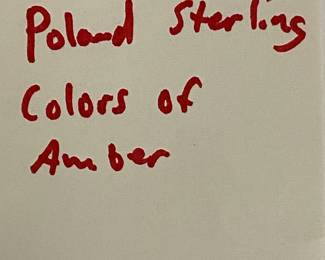 Poland Sterling
Colors of
Amber